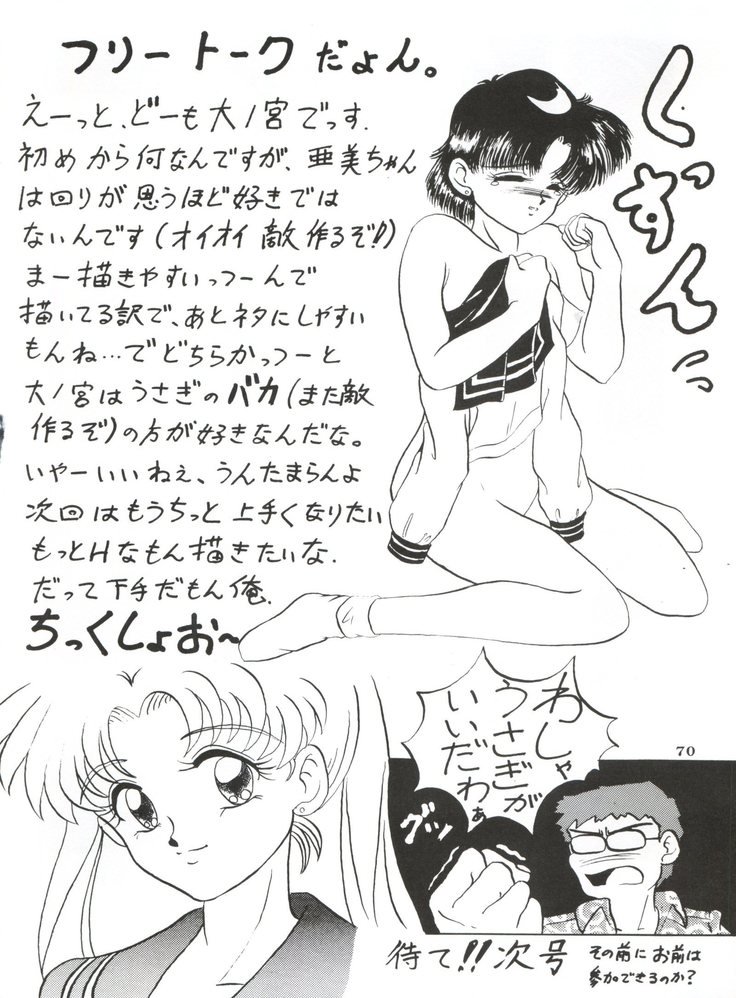 フリートークだょん。
えーっと、どーも大ノ宮でっす.
初めから何なんですが、亜美ちゃん
は回りが思うほど好きでは
ないんです(オイオイ敵作るぞ!!)
まー描きやすいっつーんで
描いてる訳で、あとネタにしやすい
もんね…でどちらかっつーと
大ノ宮はうさぎのバカ(また敵
作るぞ)の方が好きなんだな。
いやーいいねぇ、うんたまらんよ
次回はもうちっと上手くなりたい
もっとHなもん描きたいな.
だって下手だもん俺.
ちっくしょお〜
しっすんっっ
わしゃ
うさぎが
いいだわぁ
グッ
70
待て!!次号
その前にお前は
参加できるのか?